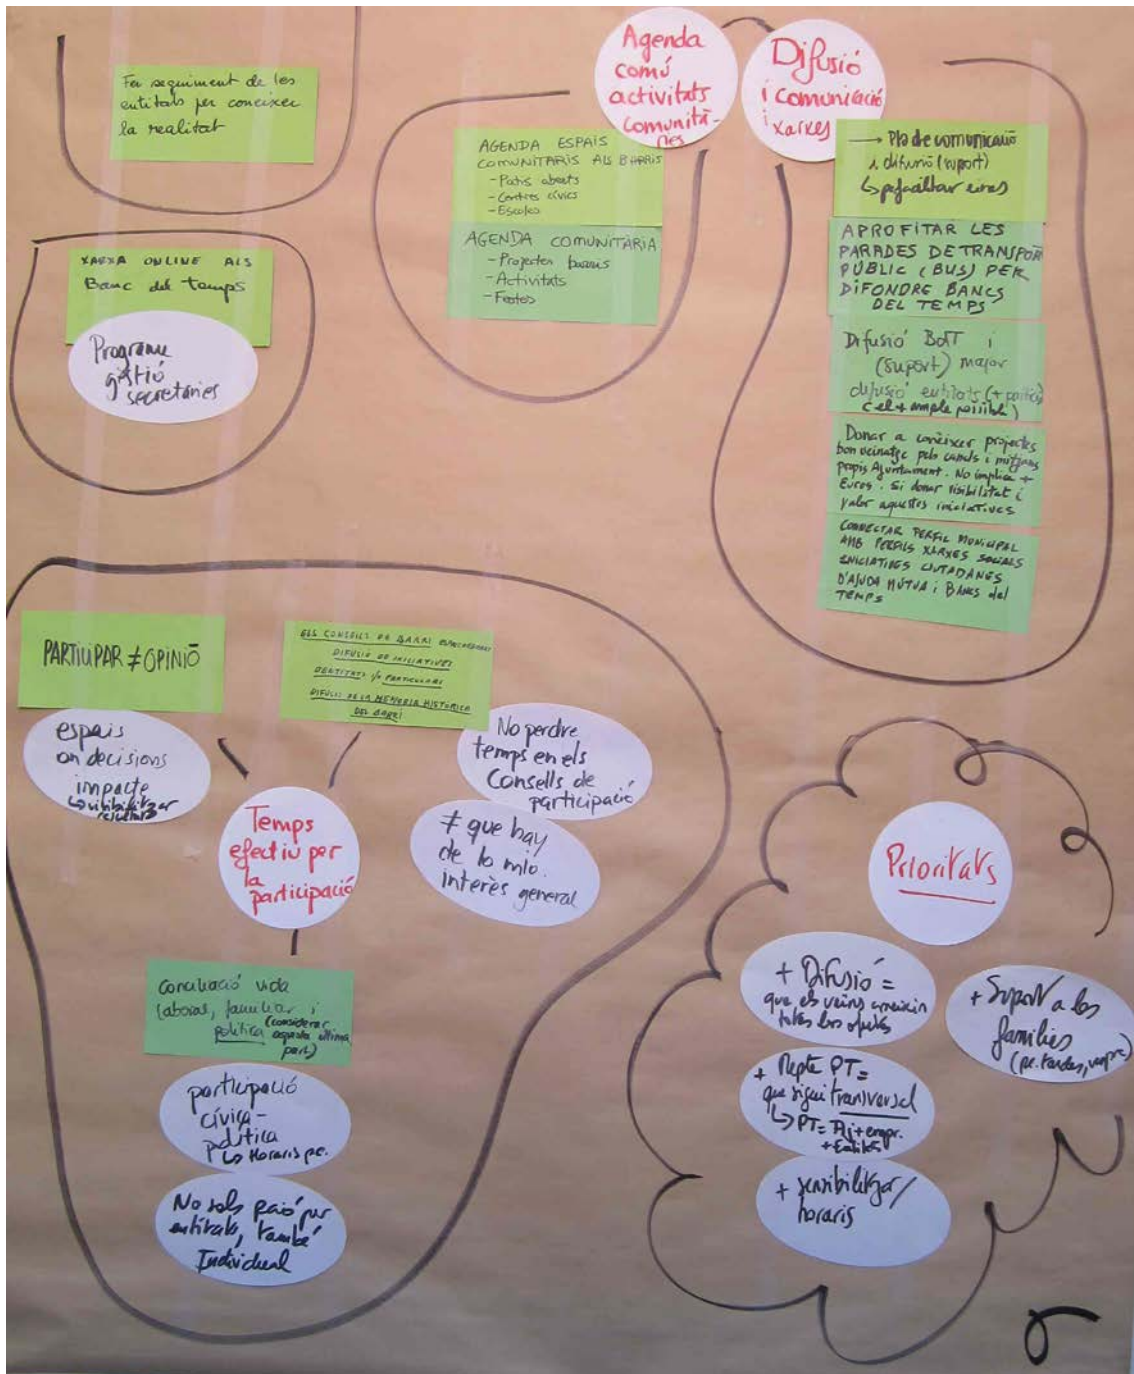 Fer seguiment de les
entitats per conèixer
la realitat
XARXA ONLINE ALS
Banc del temps
Programa
gestió
secretaries
Agenda
comú
activitats
comunità-
ries
AGENDA ESPAIS
COMUNITARIS ALS BARRIS
- Patis oberts
- Centres cívics
- Escoles
AGENDA COMUNITÀRIA
- Projectes barris
- Activitats
- Festes
Difusió
i comunicació
i xarxes
→ Pla de comunicació
i difusió (suport)
↳ per facilitar eines
APROFITAR LES
PARADES DE TRANSPORT
PÚBLIC (BUS) PER
DIFONDRE BANCS
DEL TEMPS
Difusió BdT i
(suport) major
difusió entitats
(el + ample possible)
Donar a conèixer projectes
bon veïnatge pels canals i mitjans
propis Ajuntament. No implica +
Euros. Si donar visibilitat i
valor aquestes iniciatives
CONNECTAR PERFIL MUNICIPAL
AMB PERFILS XARXES SOCIALS
INICIATIVES CIUTADANES
D'AJUDA MÚTUA i BANCS del
TEMPS
PARTICIPAR ≠ OPINIÓ
ELS CONSELLS DE BARRI
DIFUSIÓ DE INICIATIVES
D'ENTITATS i/o PARTICULARS
DIFUSIÓ DE LA MEMORIA HISTÒRICA
DEL BARRI
espais
on decisions
impacte
↳ visibilitzar
resultats
No perdre
temps en els
Consells de
participació
≠ que hay
de lo mio.
interès general
Temps
efectiu per
la
participació
Conciliació vida
laboral, familiar i
política (considerar
aquesta última
part)
participació
cívica-
política
↳ Horaris pc.
No sols paió per
entitats, també
Individual
Prioritats
+ Difusió =
que els veïns coneixin
totes les ofertes
+ Suport a les
famílies
(pe. tardes, vespre)
+ Repte PT =
que sigui transversal
↳ PT = Aj + empr.
+ Entitats
+ sensibilitzar/
horaris